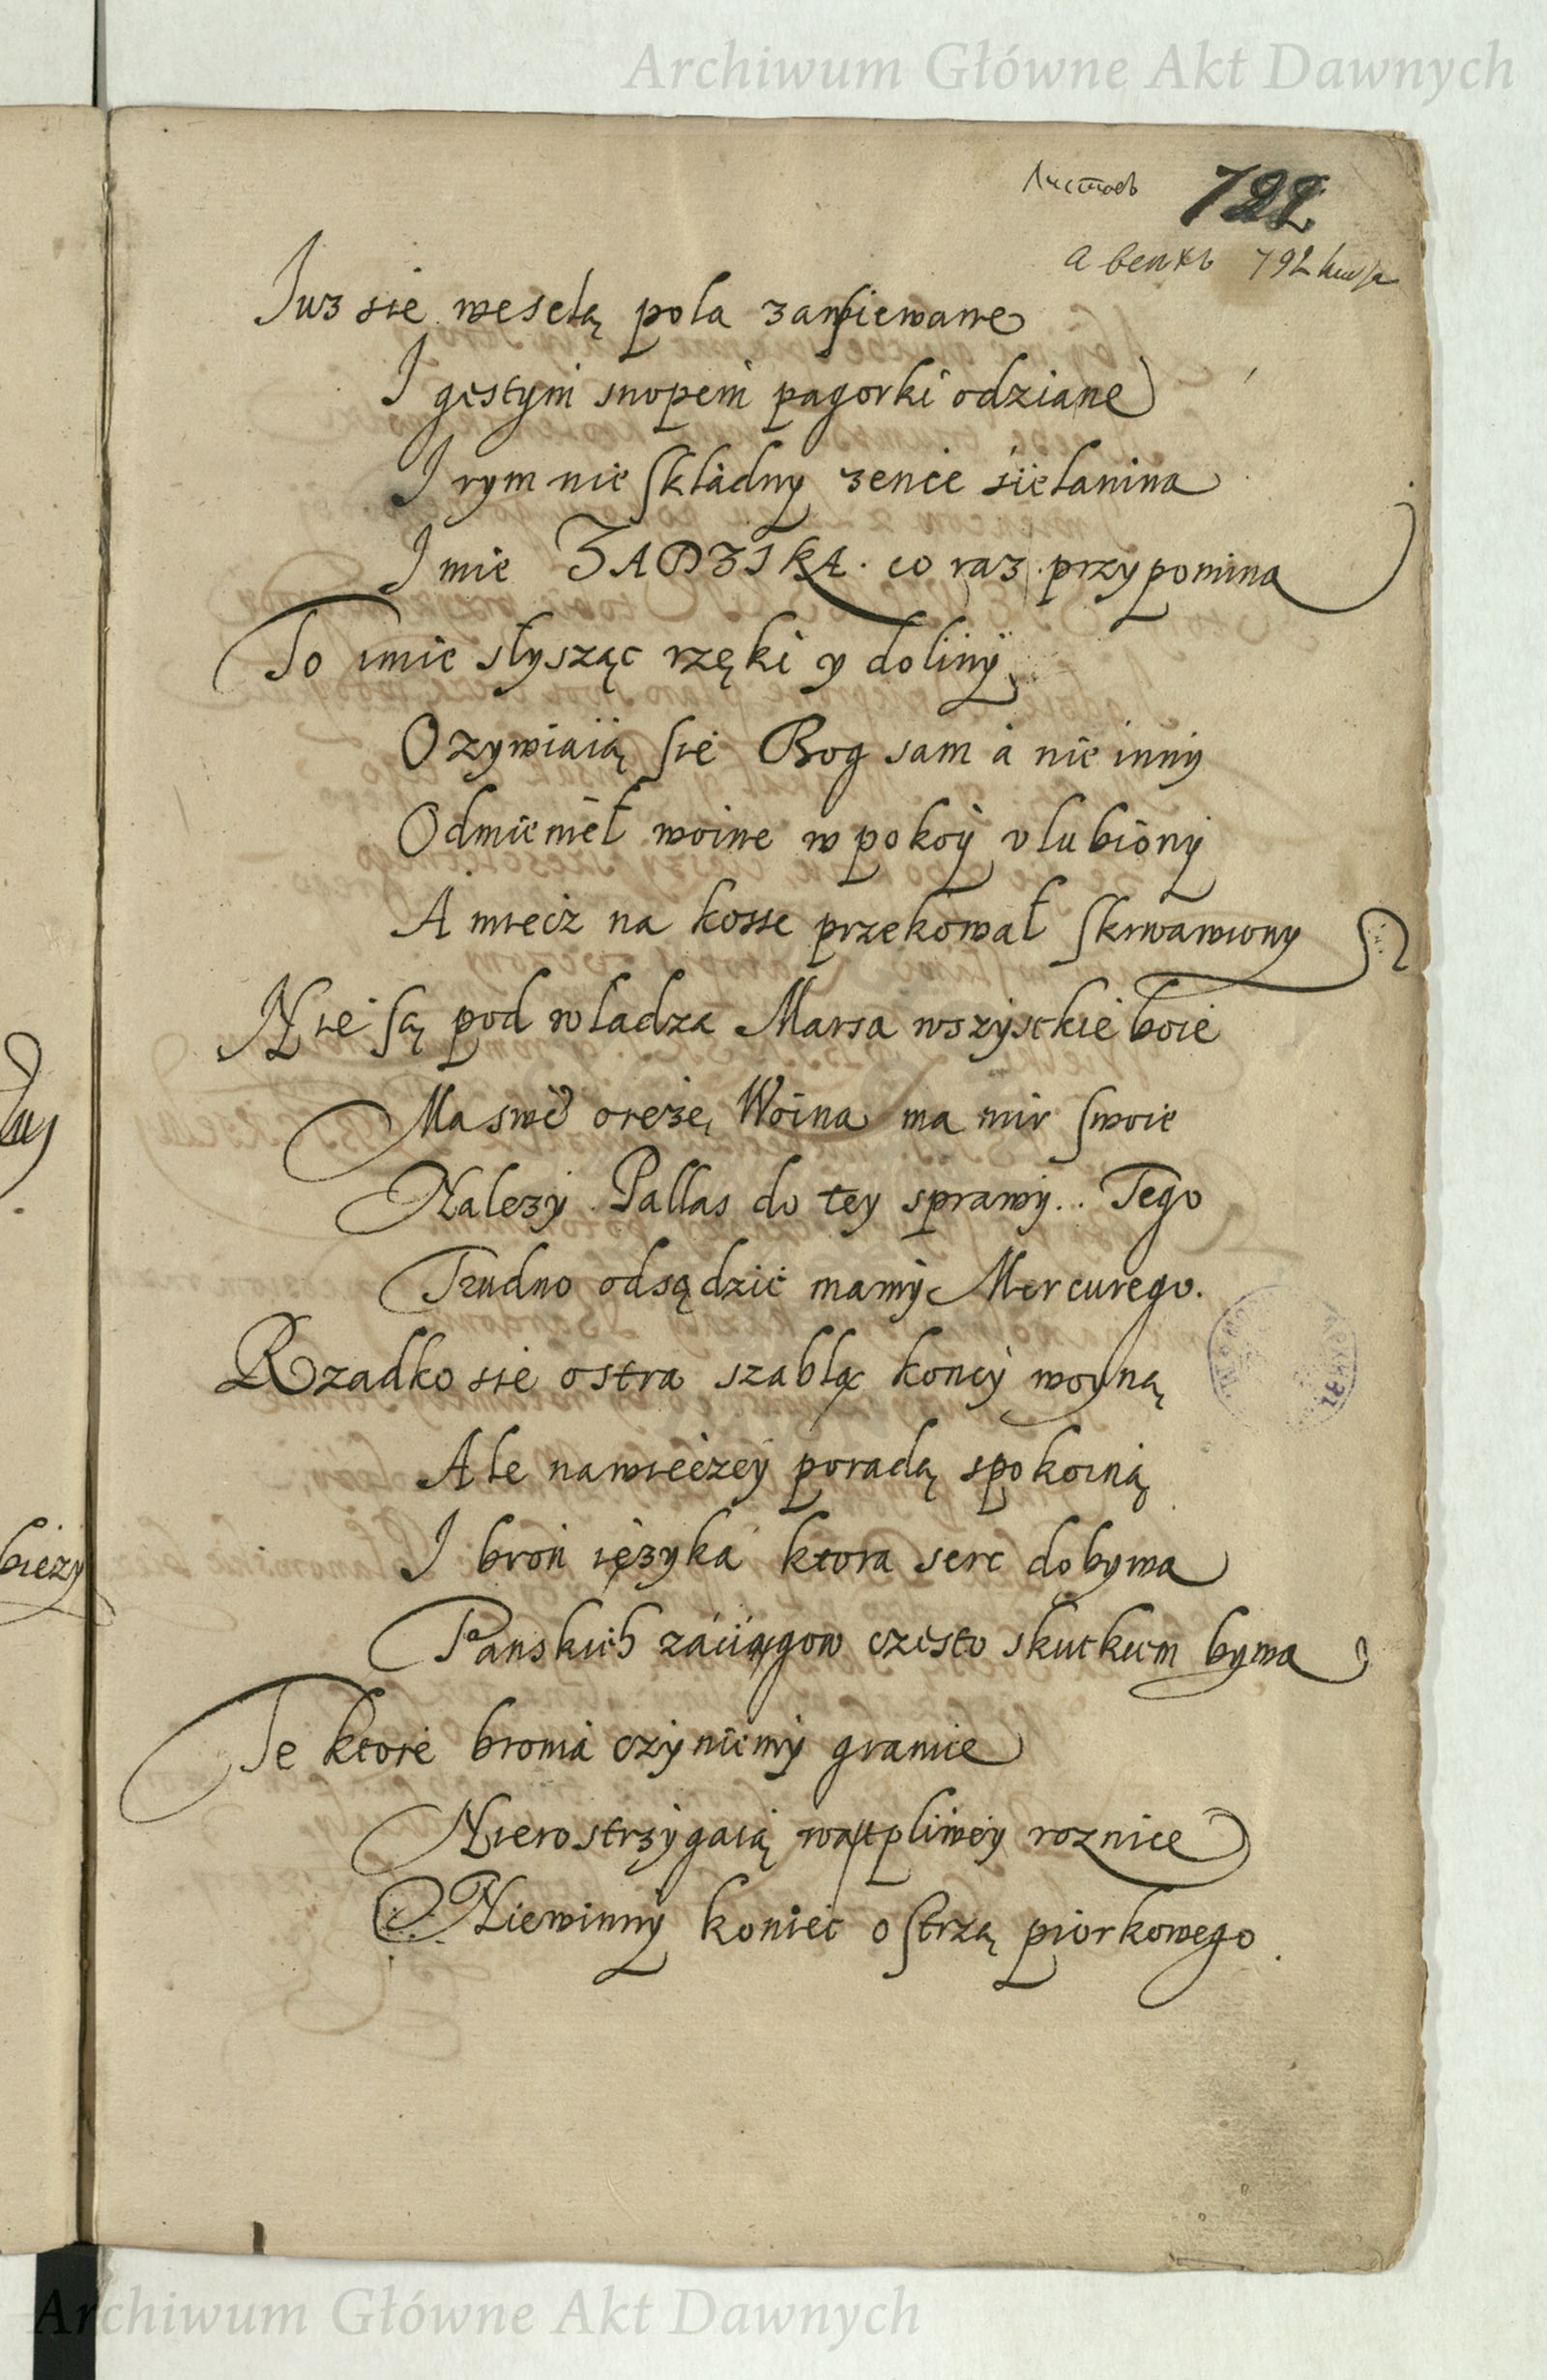 Archiwum Główne Akt Dawnych
Листовъ 722
Iuz sie weselą pola zaspiewane
I gęstym snopem pagorki odziane
I rym nie składny zence sielanina
Imie ZADZIKA. co raz przypomina
To imie słysząc rzęki y doliny
Ozywiaią się Bog sam a nie inny
Odmienieł woine w pokoy ulubiony
A miecz na kosse przekował skrwawiony
Nie są pod wladza Marsa wszystkie boie
Ma swe oreze, Woina ma mir swoie
Nalezy Pallas do tey sprawy. Tego
Trudno odsądzic mamy Mercurego.
Rzadko sie ostra szablą koncy woyną
Ale nawieczey poradą spokoiną
I bron ięzyka ktora serc dobywa
Panskich zaciągow czesto skutkiem bywa
Te ktore bronia czyniemy granice
Nierostrzygaią wątpliwey roznice
Niewinny koniec ostrzą piorkowego
biezy
Archiwum Główne Akt Dawnych